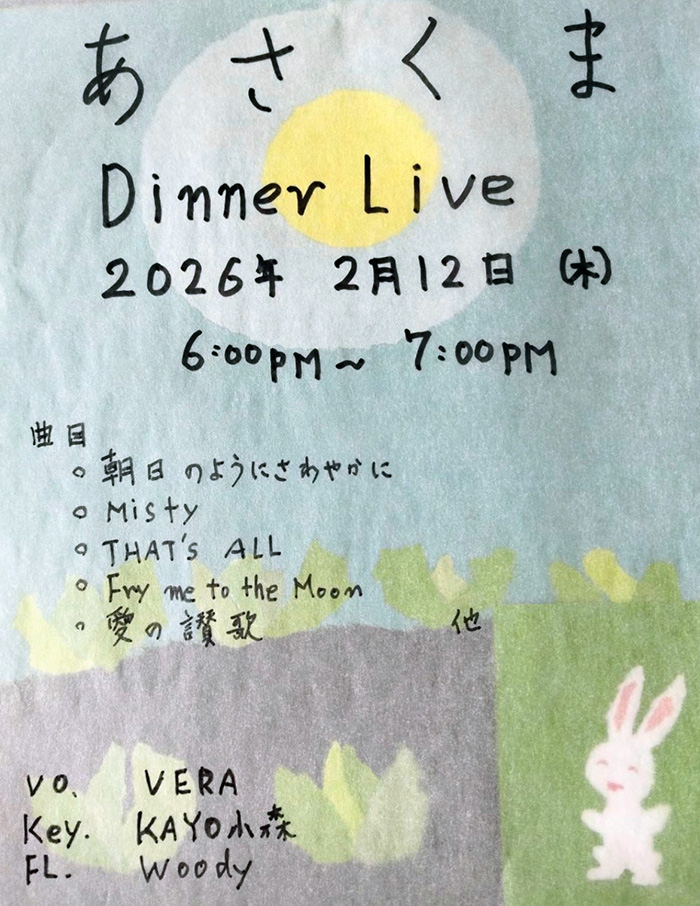 あさくま
Dinner Live
2026年 2月12日 (木)
6:00PM～ 7:00PM
曲目
○ 朝日のようにさわやかに
○ Misty
○ THAT'S ALL
○ Fry me to the Moon
○ 愛の讃歌 他
vo. VERA
Key. KAYO小森
FL. Woody